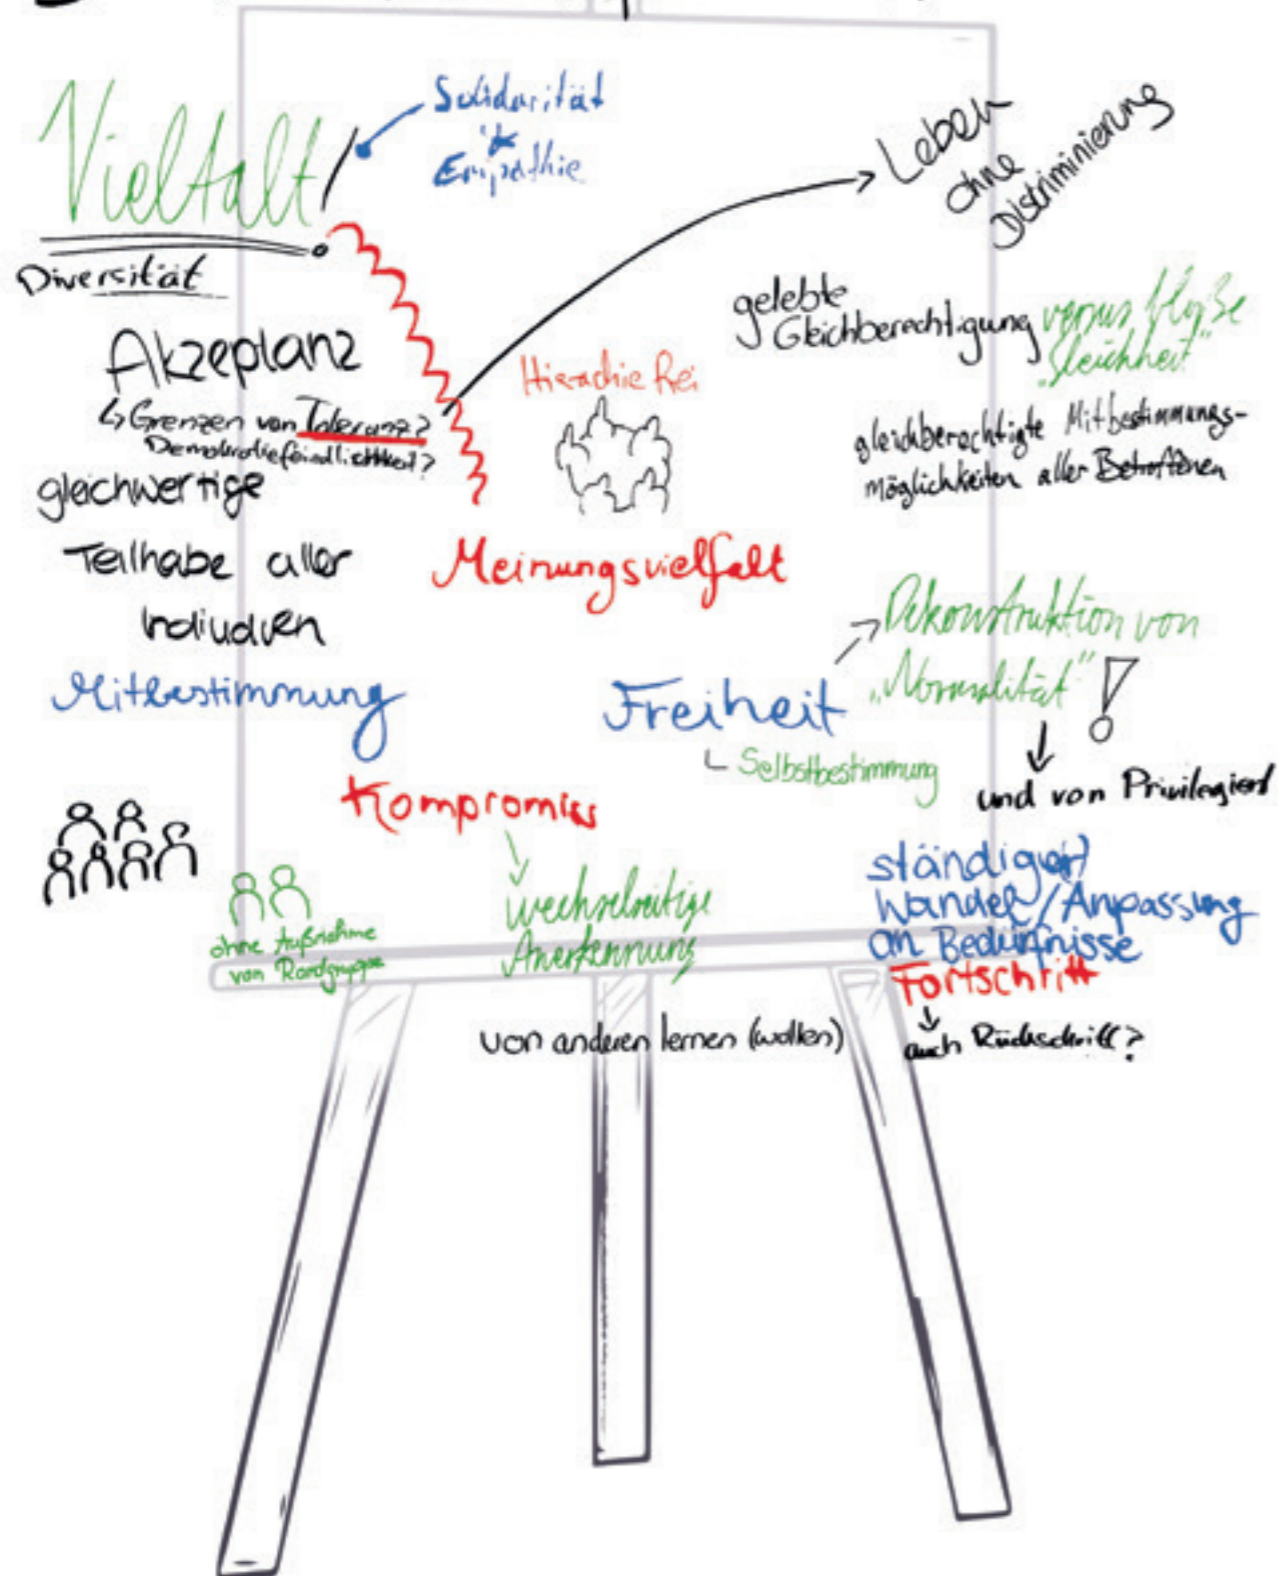 Vielfalt!
Solidarität
&
Empathie
Diversität
Leben
ohne
Diskriminierung
Akzeptanz
↳ Grenzen von Toleranz?
Demokratiefeindlichkeit?
gleichwertige
Teilhabe aller
Individuen
Mitbestimmung
Hierachie frei
Meinungsvielfalt
gelebte
Gleichberechtigung versus bloße
„Gleichheit"
gleichberechtigte Mitbestimmungs-
möglichkeiten aller Betroffenen
Freiheit
Selbstbestimmung
Dekonstruktion von
„Normalität" !
und von Privilegien!
Kompromiss
wechselseitige
Anerkennung
ohne Außnahme
von Randgruppe
ständiger
Wandel/Anpassung
an Bedürfnisse
Fortschritt
auch Rückschritt?
von anderen lernen (wollen)